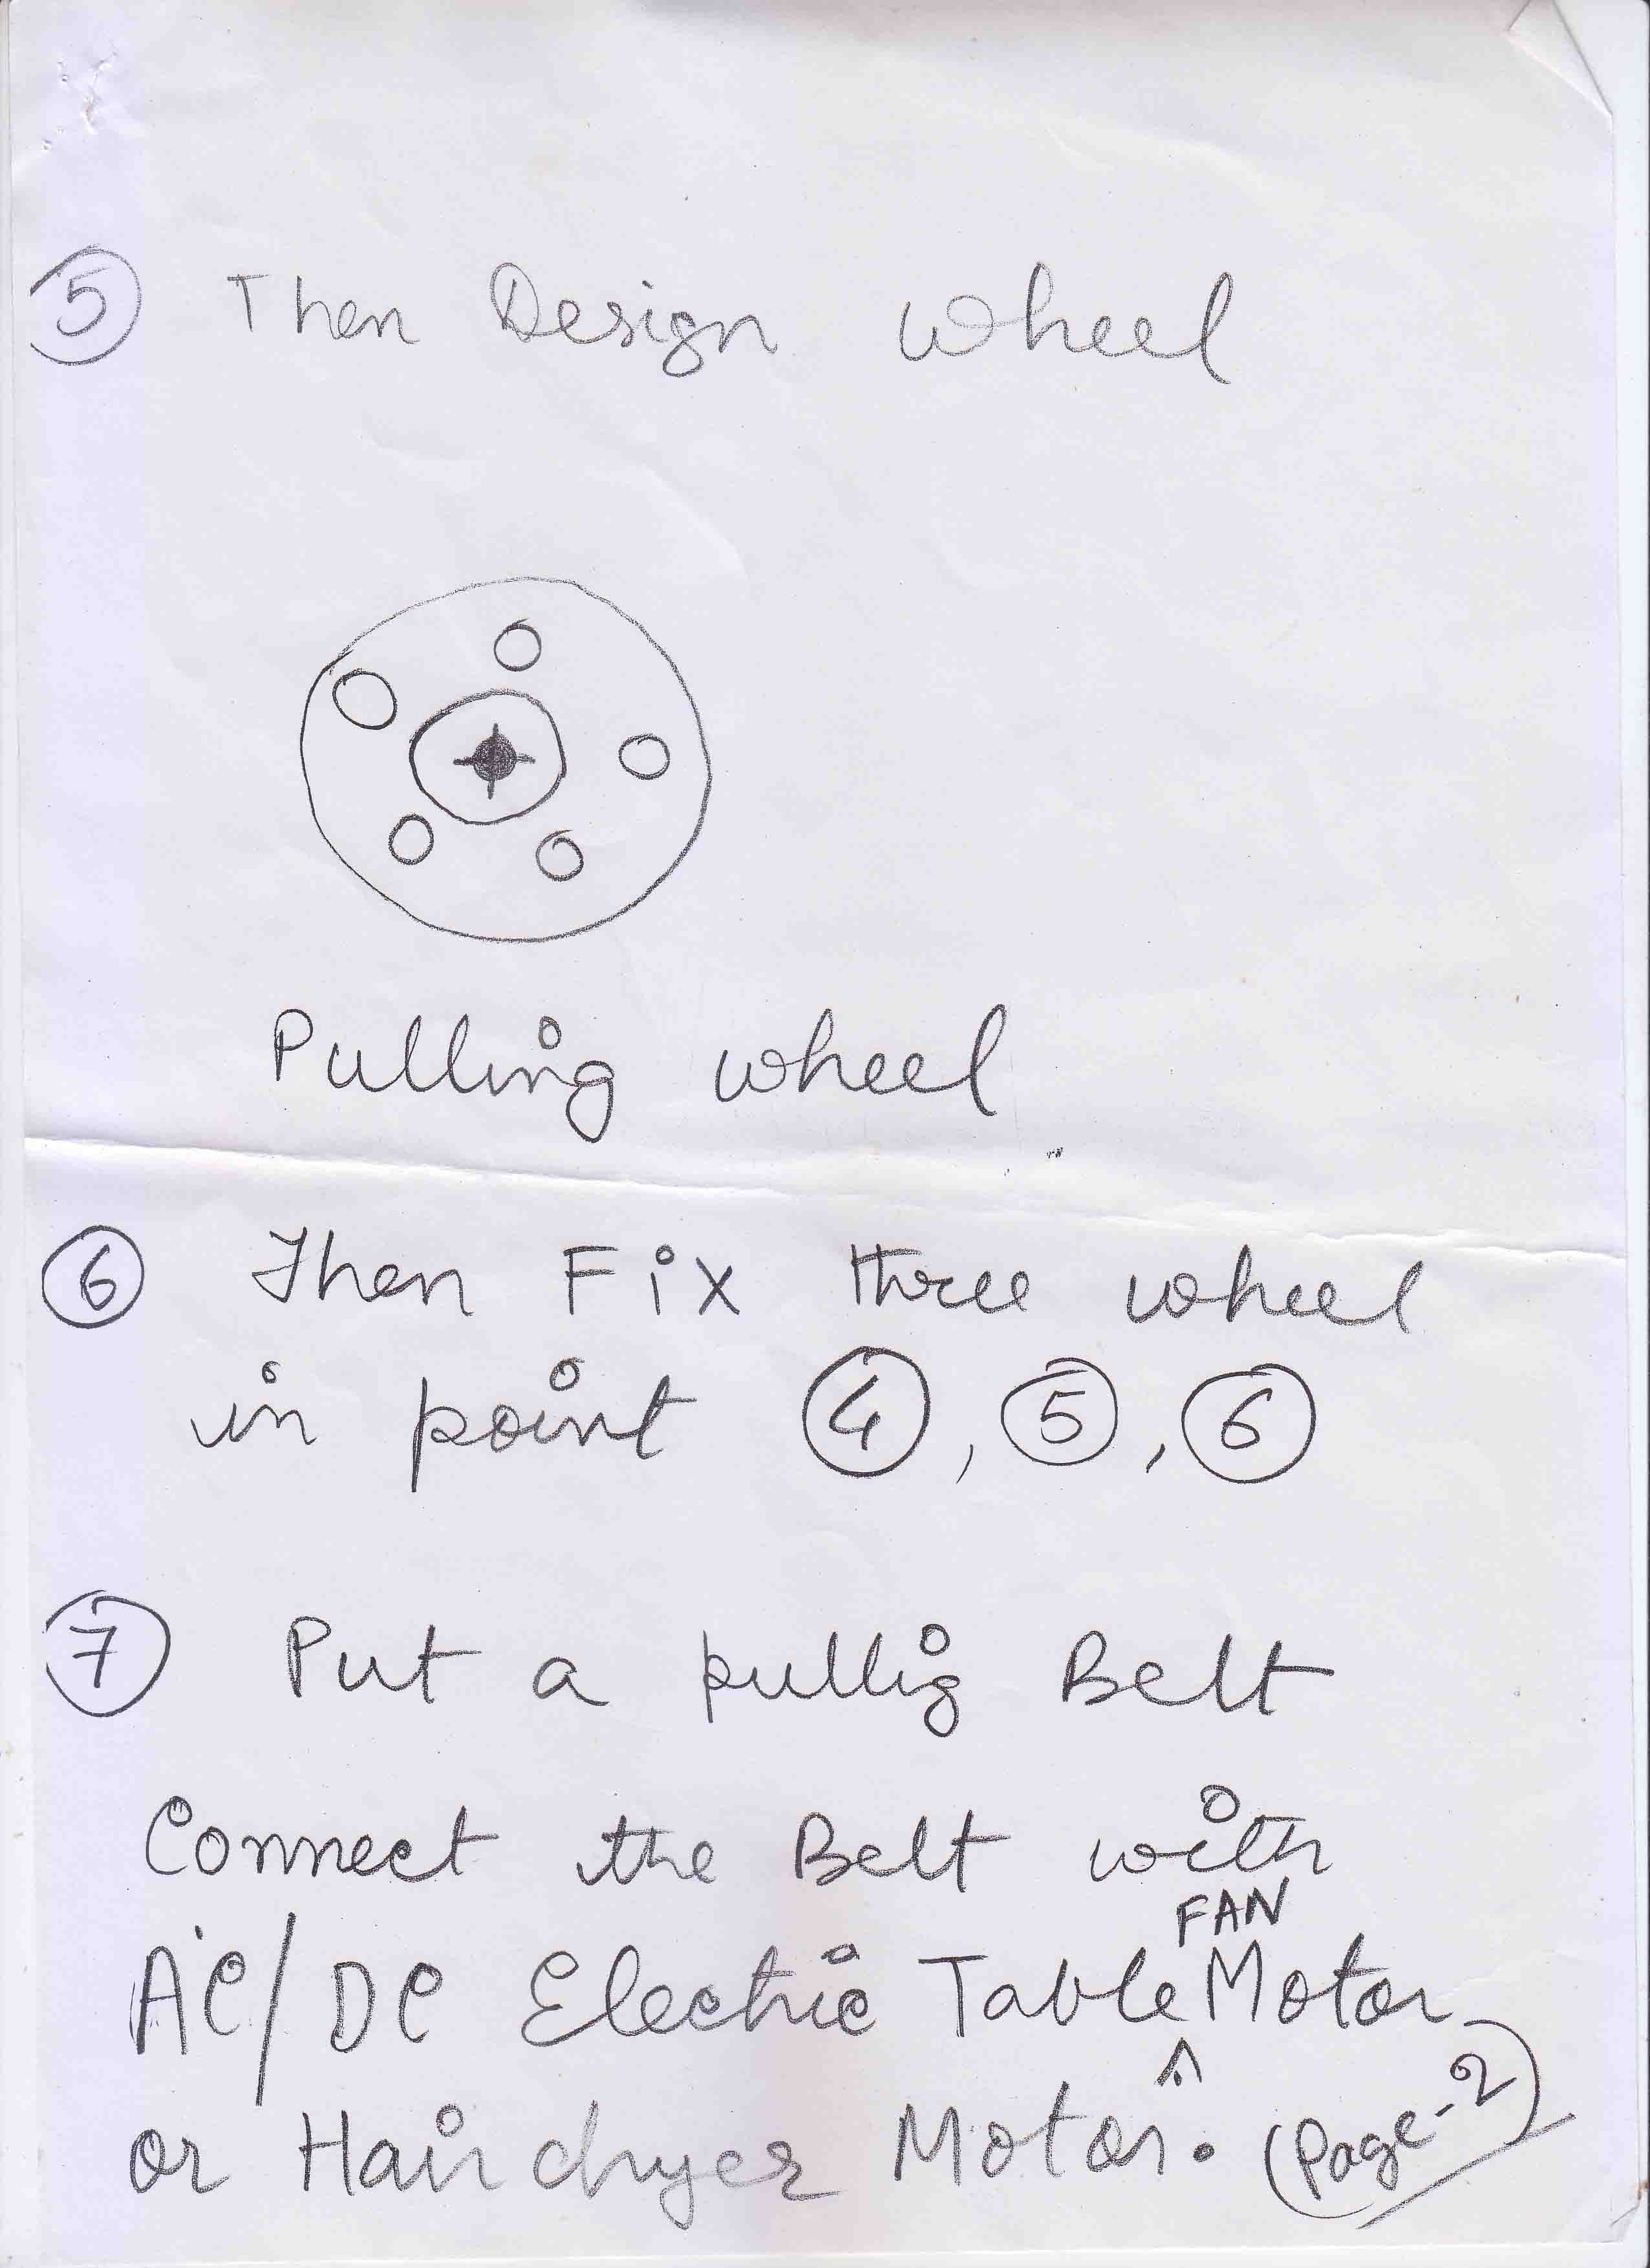 5 Then Design wheel
Pulling wheel
6 Then Fix three wheel
in point 4, 5, 6
7 Put a pullig Belt
Connect the Belt with
FAN
AC/DC Electric Table Motor
or Hair dryer Motor. (Page-2)